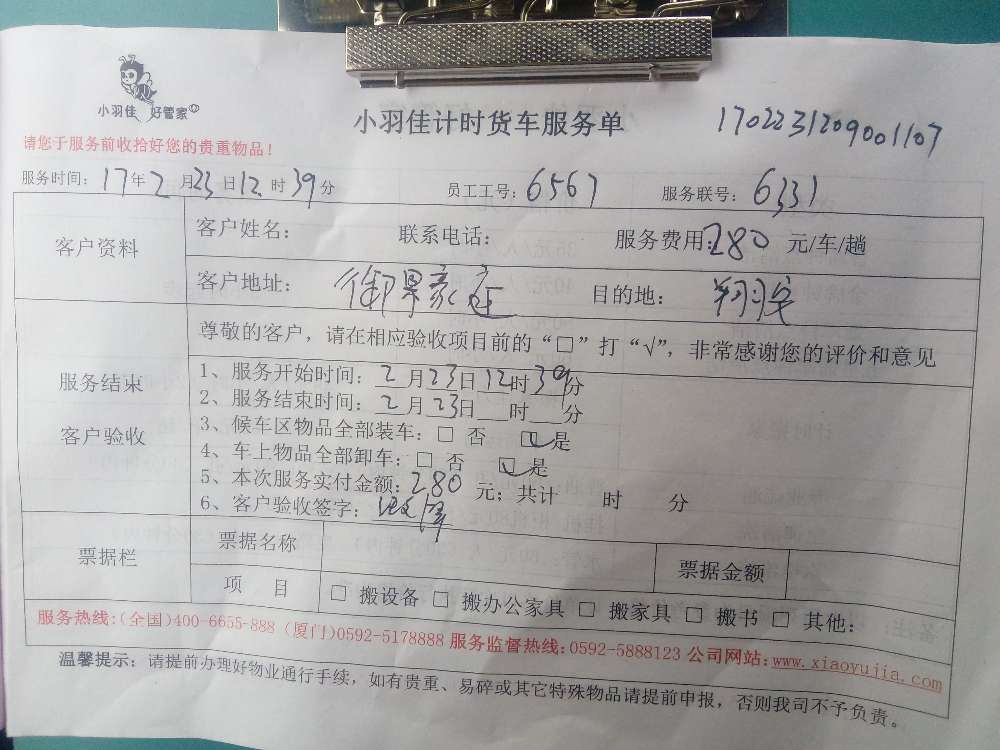 小羽佳 好管家
小羽佳计时货车服务单 1702231209001107
请您于服务前收拾好您的贵重物品！
服务时间：17年2月23日12时39分 员工工号：6567 服务联号：6331
客户资料
客户姓名： 联系电话： 服务费用：280 元/车/趟
客户地址：御景豪庭 目的地：翔安
尊敬的客户，请在相应验收项目前的“□”打“√”，非常感谢您的评价和意见
服务结束
客户验收
1、服务开始时间：2月23日12时39分
2、服务结束时间：2月23日___时___分
3、候车区物品全部装车：□ 否 ☑是
4、车上物品全部卸车：□ 否 ☑是
5、本次服务实付金额：280 元；共计 时 分
6、客户验收签字：
票据栏
票据名称 票据金额
项 目 □ 搬设备 □ 搬办公家具 □ 搬家具 □ 搬书 □ 其他：
服务热线：(全国)400-6655-888 (厦门)0592-5178888 服务监督热线：0592-5888123 公司网站：www.xiaoyujia.com
温馨提示：请提前办理好物业通行手续，如有贵重、易碎或其它特殊物品请提前申报，否则我司不予负责。